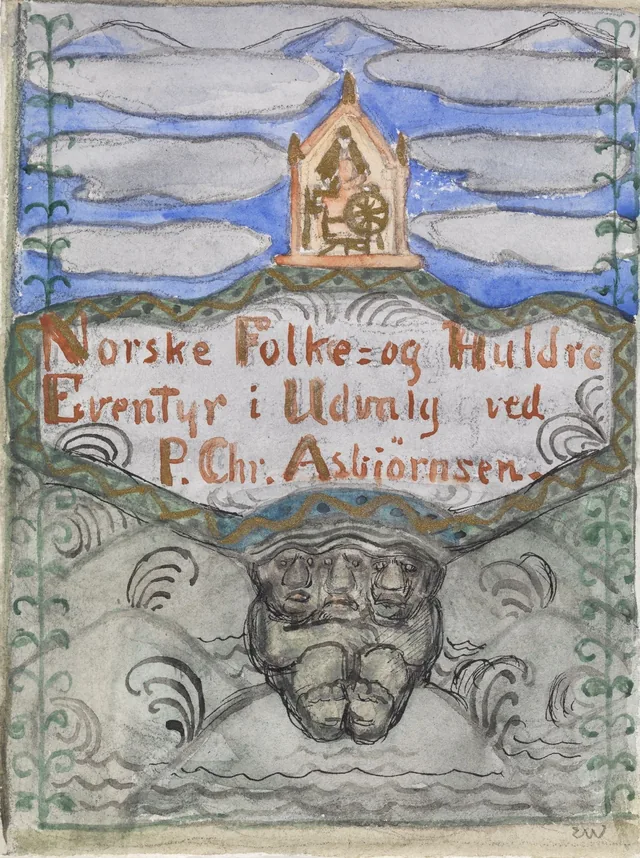 Norske Folke=og Huldre
Eventyr i Udvalg ved
P. Chr. Asbjörnsen.
EW